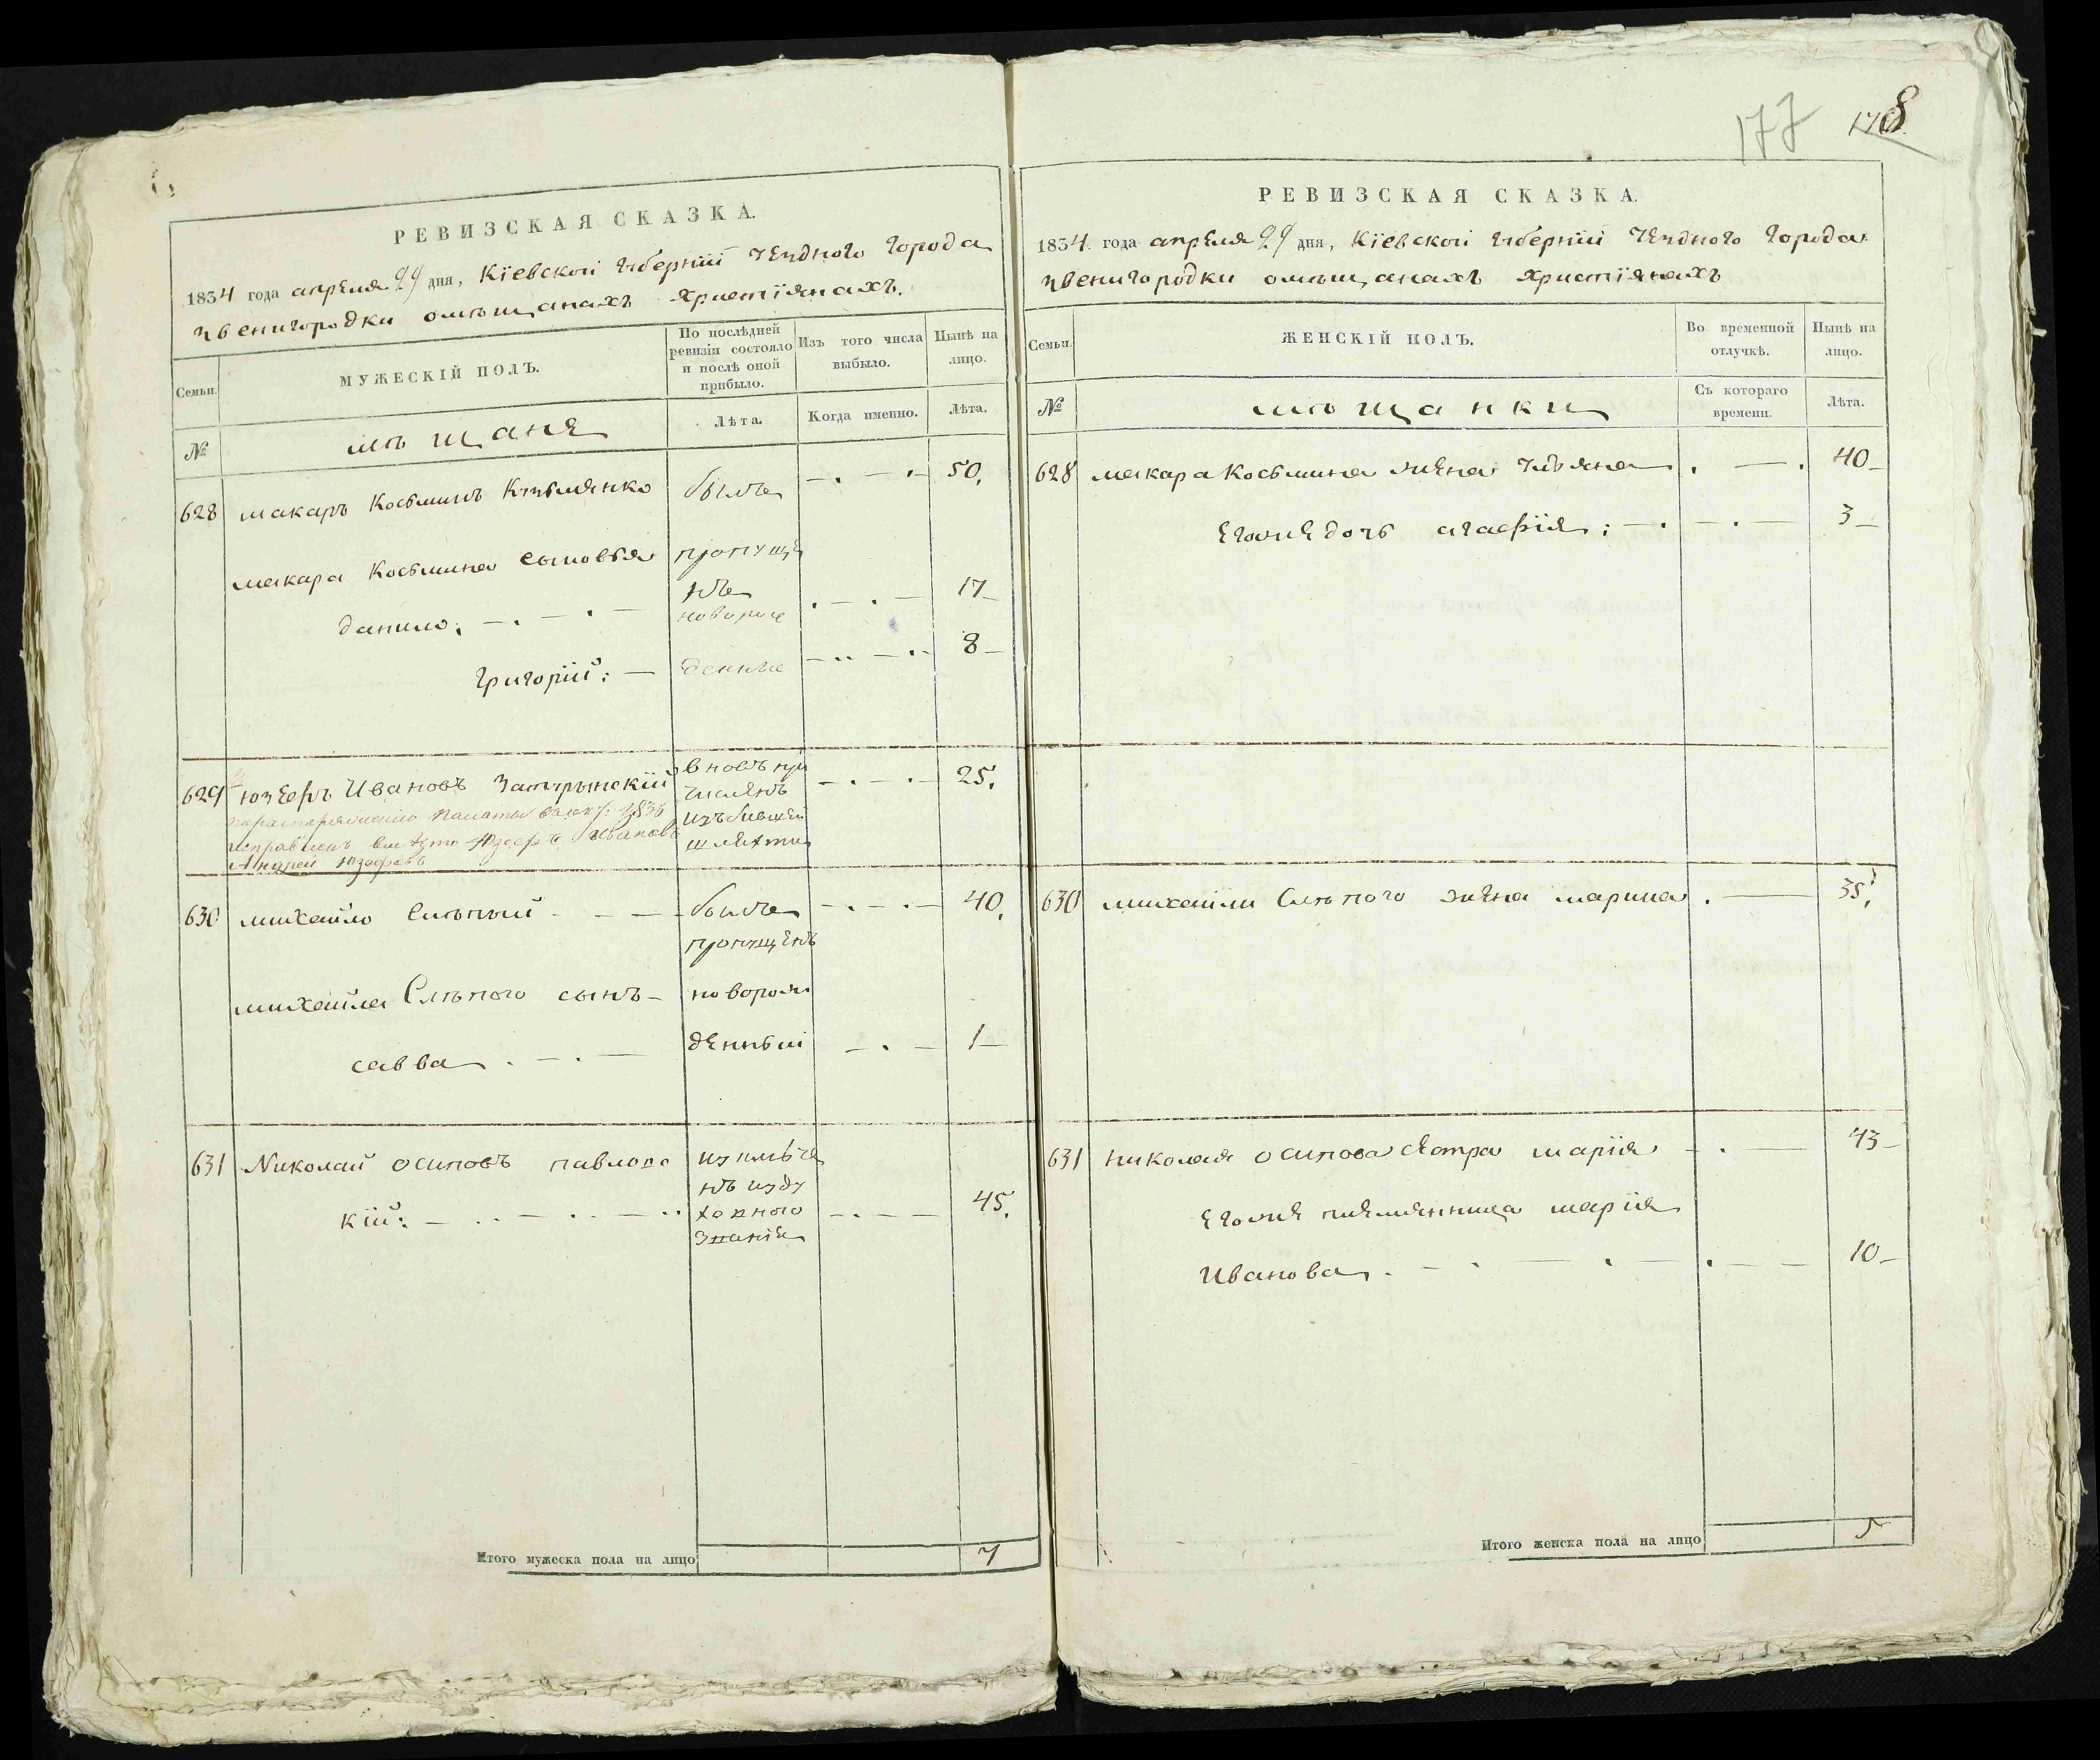 177 178
РЕВИЗСКАЯ СКАЗКА.
1834 года апреля 29 дня, Кіевской губерніи уезднаго города
звенигородки омѣщанахъ христіянахъ.
Семьи.
МУЖЕСКІЙ ПОЛЪ.
По послѣдней ревизіи состояло и послѣ оной прибыло.
Изъ того числа выбыло.
Нынѣ на лицо.
№
мѣщане
Лѣта.
Когда именно.
Лѣта.
628 макаръ Косьминъ Кузьменко былъ 50.
макара Косьмина сыновья пропуще
данило: нъ 17
новорож
григорій: денне 8
629 юзефъ Ивановъ вновь при 25.
численъ
исправленъ вместо Юзефъ Ивановъ
изъ бывшей
Андрей Юзефовъ шляхты
630 михайло Слѣпый былъ 40.
пропущенъ
михайла Слѣпого сынъ новорож
савва денный 1
631 Николай осиповъ павловс изключе
нъ изду
кій: ховного 45.
званія
Итого мужеска пола на лицо 7
РЕВИЗСКАЯ СКАЗКА.
1834 года апреля 29 дня, Кіевской губерніи уездного города
звенигородки омѣщанахъ христіянахъ
Семьи.
ЖЕНСКІЙ ПОЛЪ.
Во временной отлучкѣ.
Нынѣ на лицо.
№
мѣщанки
Съ котораго времени.
Лѣта.
628 макара Косьмина жена ульяна 40
егоже дочь агафія: 3
630 михайли Слѣпого жена марина 35.
631 николая осипова сестра марія 43
егоже племянница марія
Иванова 10
Итого женска пола на лицо 5